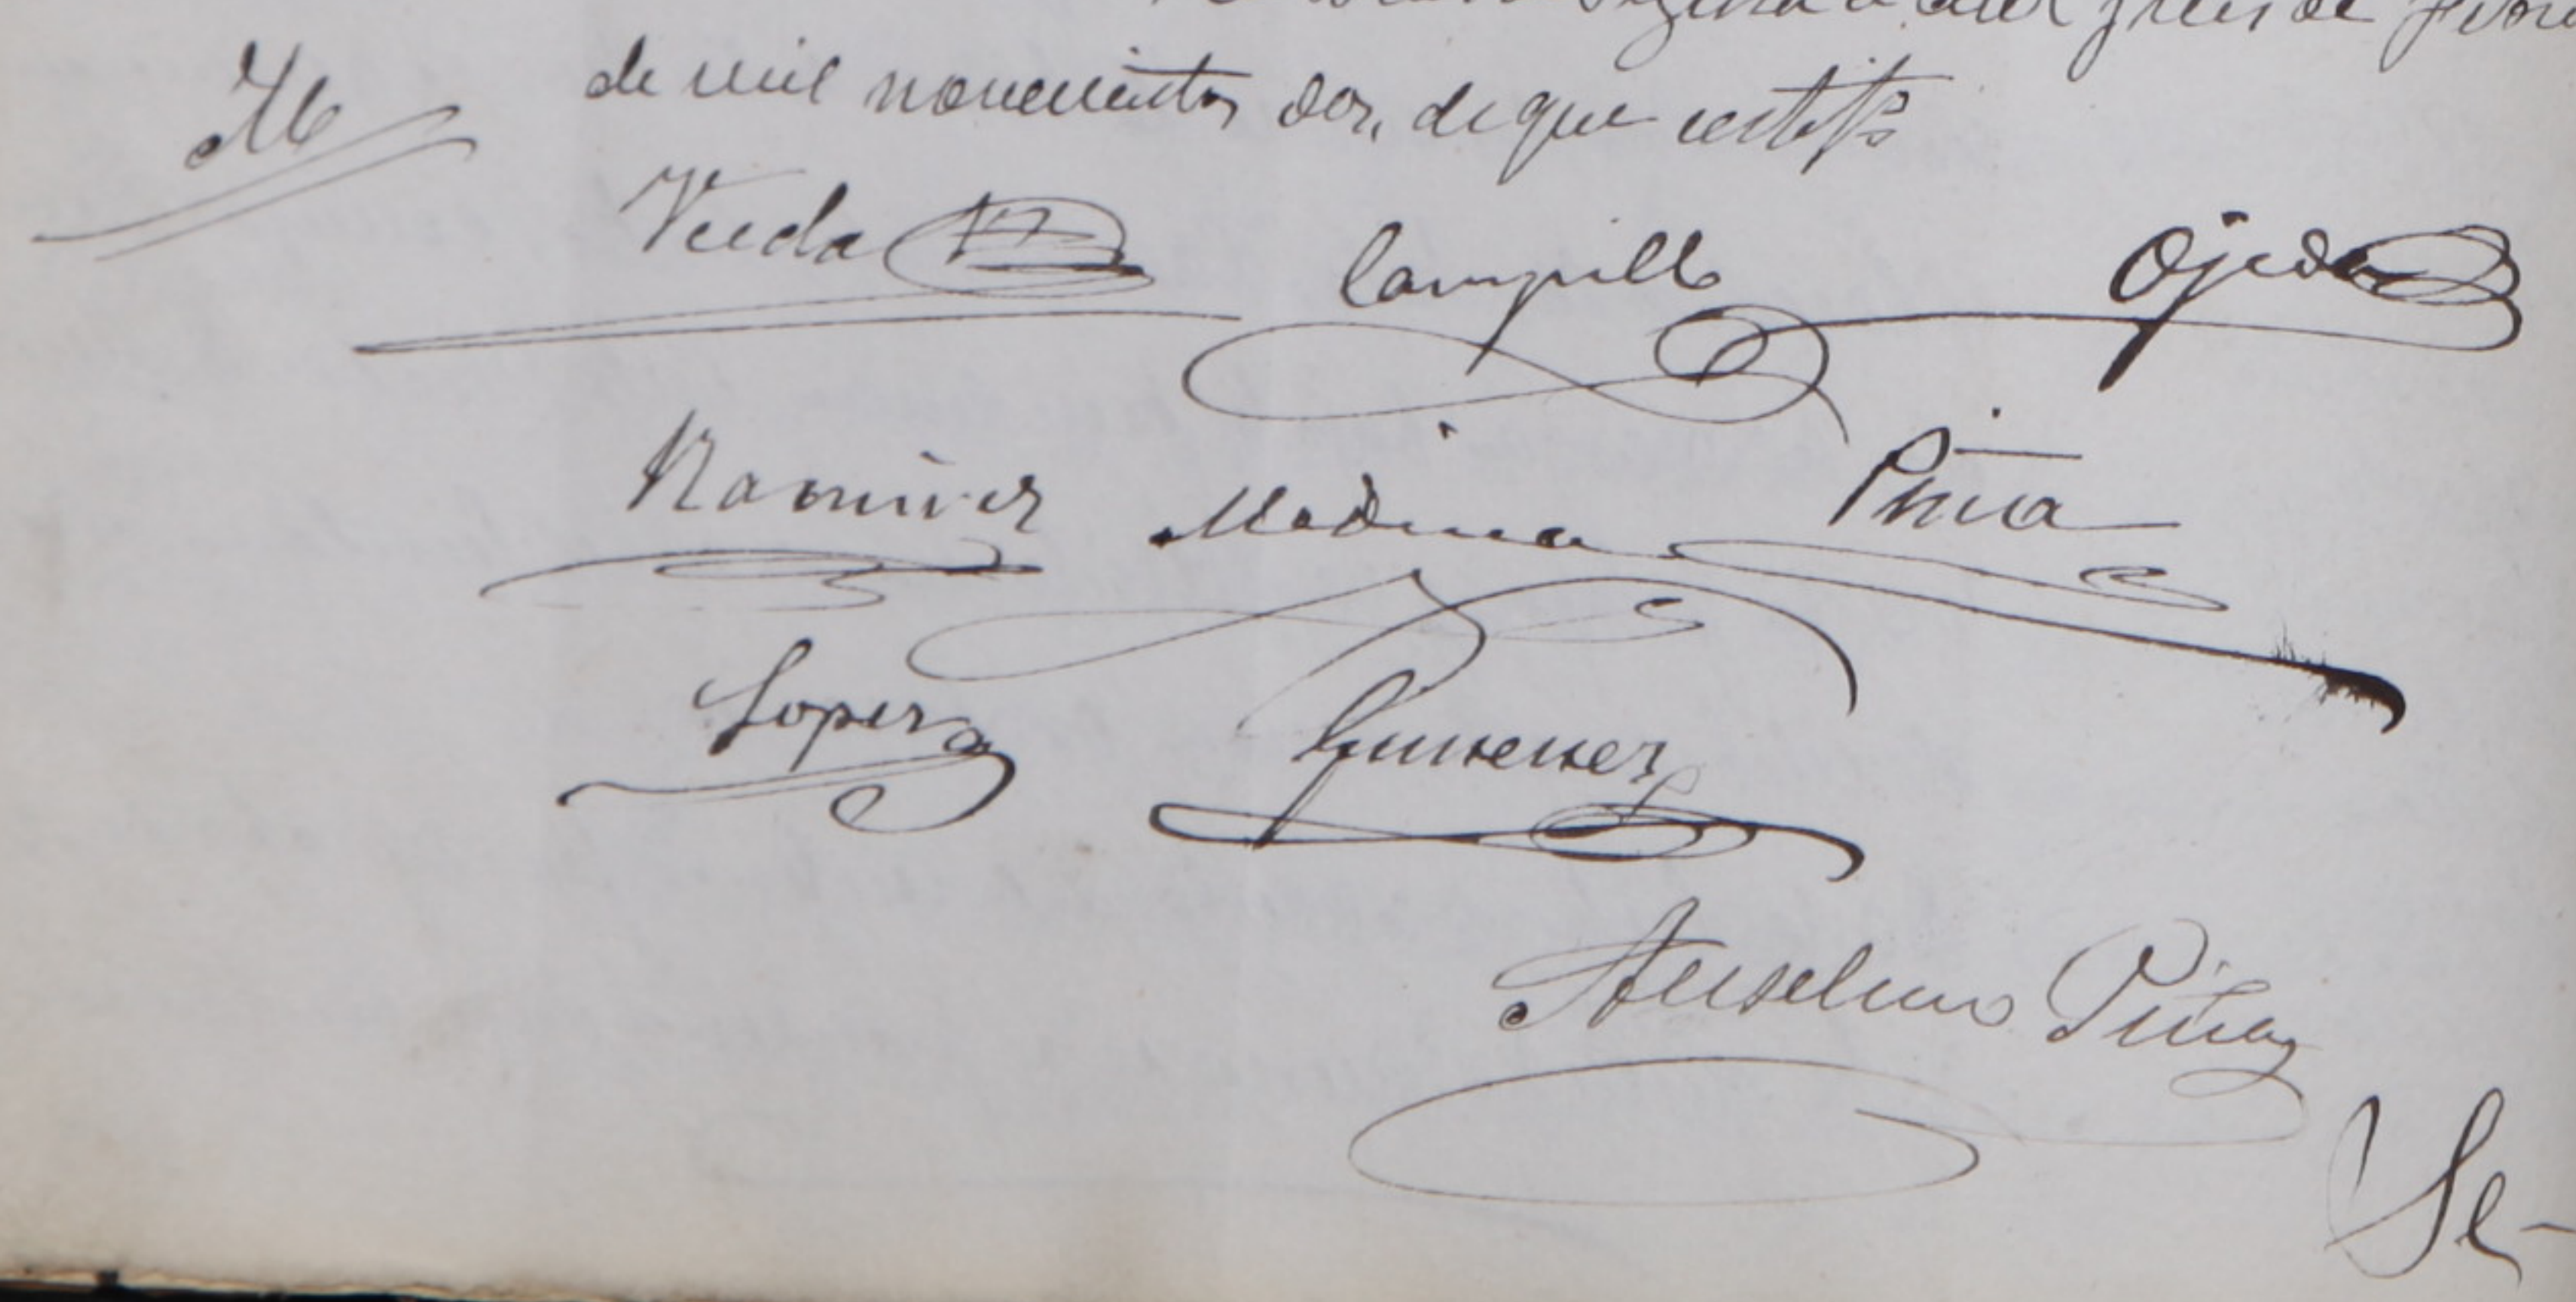 de mil novecientos dos, de que certifº
Vuda Campillo Ojeda
Ramirez Medina Piña
Lopez Gimenez
Anselmo Piña
Se-